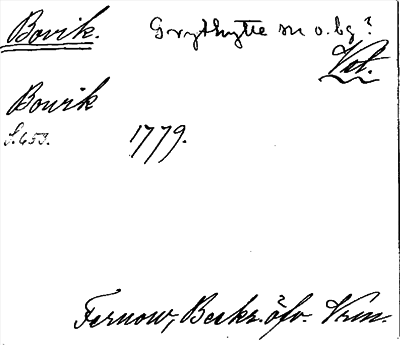 Bovik. Grythytte sn o. bg?
Vstl.
Bowik
S. 653. 1779.
Fernow, Beskr. öfv. Vrm.